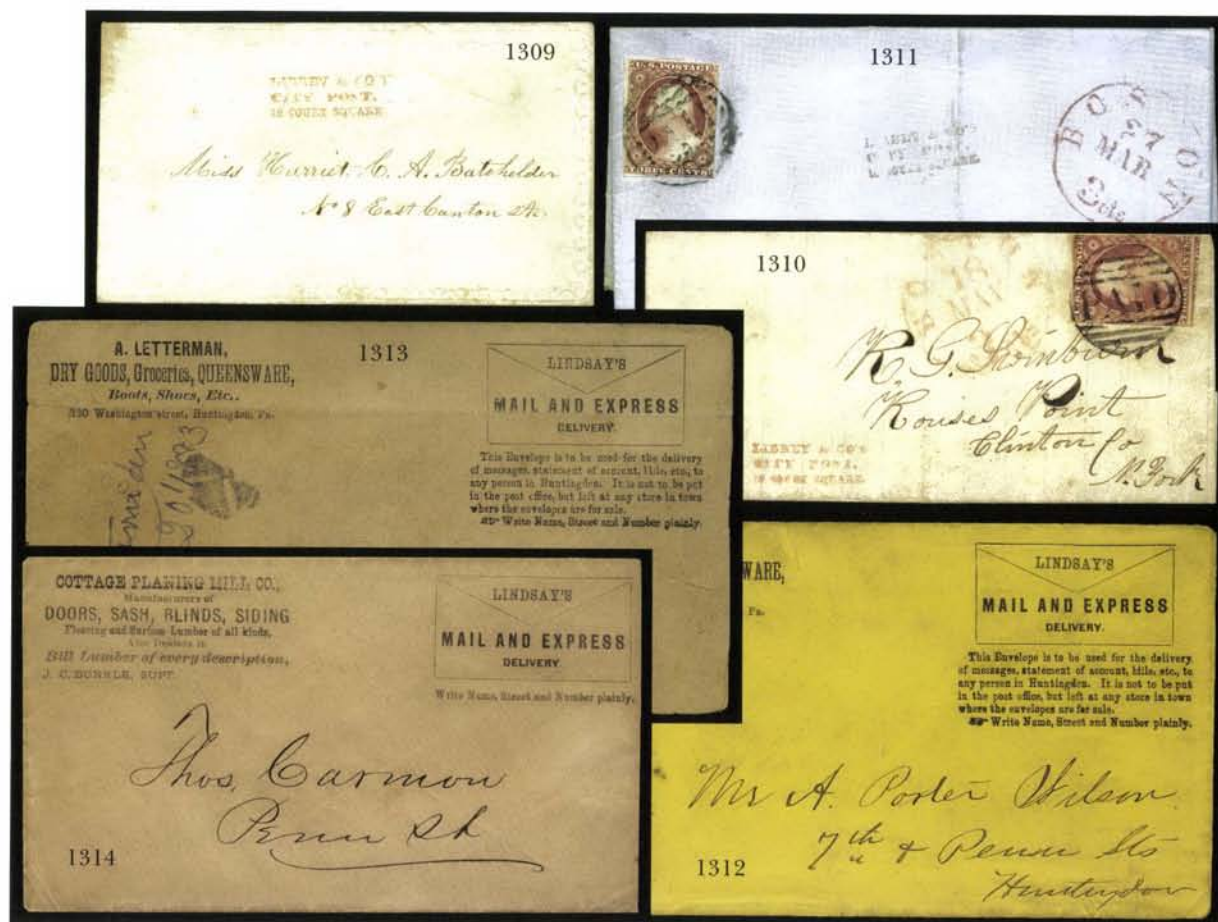 1309
LIBBEY & CO'S
CITY POST.
10 COURT SQUARE
Miss Harriet C. A. Batchelder
No 8 East Canton St.
1311
U.S. POSTAGE
THREE CENTS
LIBBEY & CO'S
CITY POST.
COURT SQUARE
BOSTON
27
MAR
3 cts
1310
18
MAY
PAID
R. G. Swinburn
Rouses Point
Clinton Co
N. York
LIBBEY & CO'S
CITY POST.
10 COURT SQUARE
A. LETTERMAN,
DRY GOODS, Groceries, QUEENSWARE,
Boots, Shoes, Etc.,
Washington street, Huntingdon, Pa.
1313
LINDSAY'S
MAIL AND EXPRESS
DELIVERY.
This Envelope is to be used for the delivery
of messages, statement of account, bills, etc., to
any person in Huntingdon. It is not to be put
in the post office, but left at any store in town
where the envelopes are for sale.
Write Name, Street and Number plainly.
COTTAGE PLANING MILL CO.,
Manufacturers of
DOORS, SASH, BLINDS, SIDING
Flooring and Surface Lumber of all kinds,
Also Dealers in
Bill Lumber of every description,
SUPT.
LINDSAY'S
MAIL AND EXPRESS
DELIVERY.
Write Name, Street and Number plainly.
Thos. Carmon
Penn St
1314
WARE,
Pa.
LINDSAY'S
MAIL AND EXPRESS
DELIVERY.
This Envelope is to be used for the delivery
of messages, statement of account, bills, etc., to
any person in Huntingdon. It is not to be put
in the post office, but left at any store in town
where the envelopes are for sale.
Write Name, Street and Number plainly.
Mr A. Porter Wilson
7th & Penn Sts
Huntingdon
1312